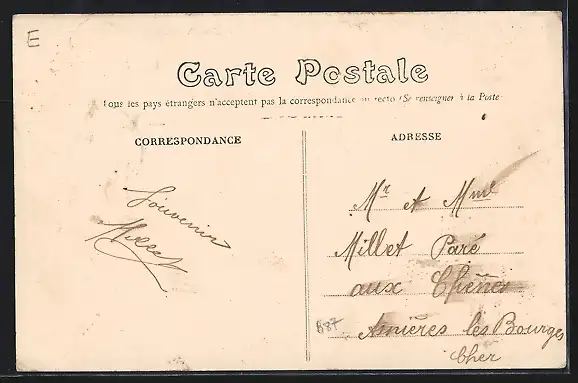 E
Carte Postale
Tous les pays étrangers n'acceptent pas la correspondance au recto (Se renseigner à la Poste
CORRESPONDANCE
ADRESSE
Souvenir
Millet
Mr et Mme
Millet Paré
aux Chênes
Asnières les Bourges
Cher
B87